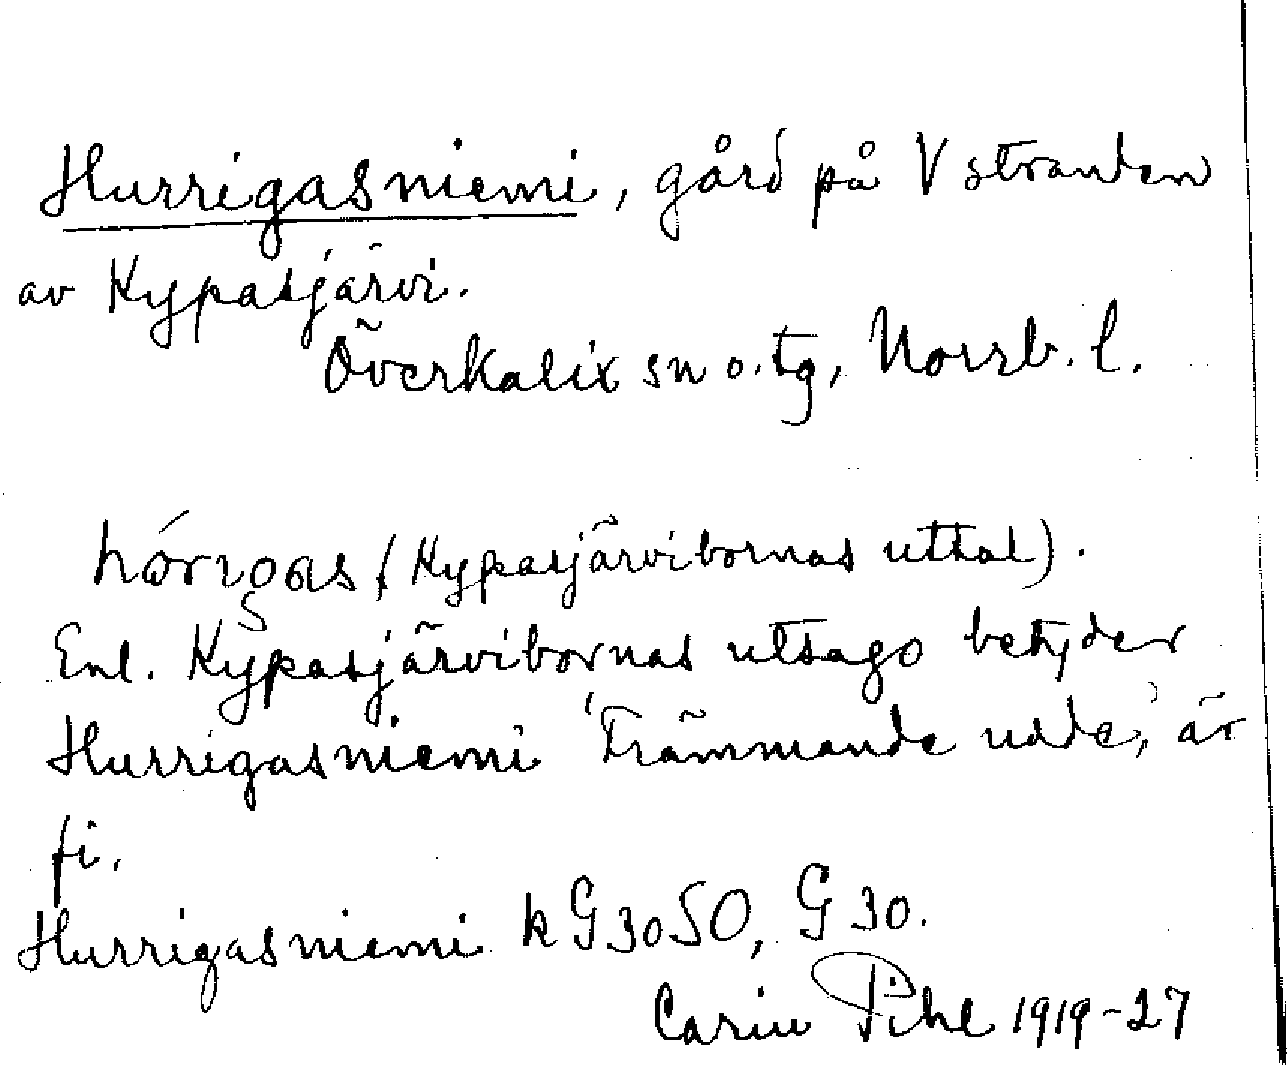 Hurrigasniemi, gård på V stranden
av Kypasjärvi.
Överkalix sn o. tg, Norrb. l.
(Kypasjärvibornas uttal).
Enl. Kypasjärvibornas utsago betyder
Hurrigasniemi 'Främmande udde', är
fi.
Hurrigasniemi k G 30 SO, G 30.
Carin Pihl 1919-27